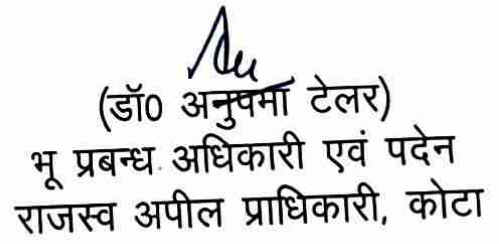 (डॉ0 अनुपमा टेलर)
भू प्रबन्ध अधिकारी एवं पदेन
राजस्व अपील प्राधिकारी, कोटा